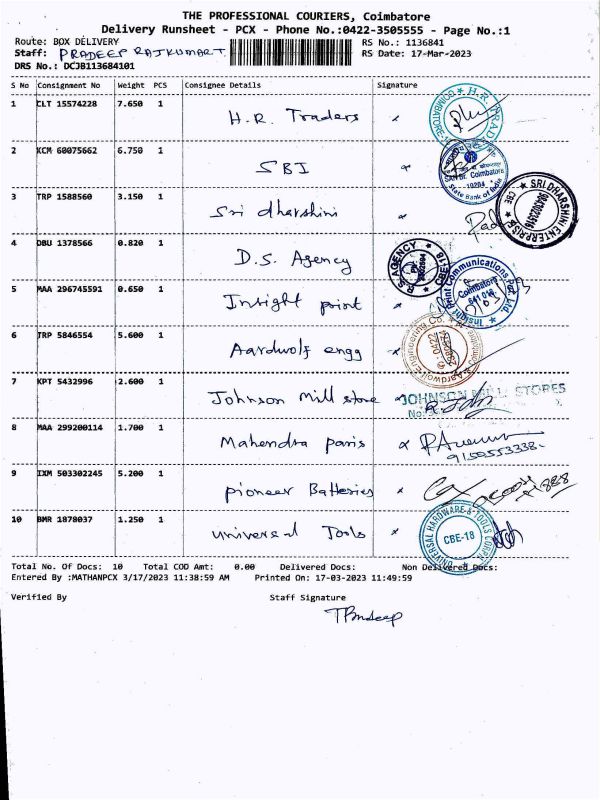 THE PROFESSIONAL COURIERS, Coimbatore
Delivery Runsheet - PCX - Phone No.:0422-3505555 - Page No.:1
Route: BOX DELIVERY
RS No.: 1136841
Staff: PRADEEP RAJKUMAR T
RS Date: 17-Mar-2023
DRS No.: DCJB113684101
S No Consignment No Weight PCS Consignee Details Signature
1 CLT 15574228 7.650 1 H.R. Traders
2 KCM 60075662 6.750 1 SBI
3 TRP 1588560 3.150 1 Sri dharshini
4 DBU 1378566 0.820 1 D.S. Agency
5 MAA 296745591 0.650 1 Insight print
6 TRP 5846554 5.600 1 Aardwolf engg
7 KPT 5432996 2.600 1 Johnson Mill store JOHNSON MILL STORES
8 MAA 299200114 1.700 1 Mahendra paris
9150553338
9 IXM 503302245 5.200 1 pioneer Batteries
10 BMR 1878037 1.250 1 universal Tools
COIMBATORE H.R. TRAD
Coimbatore
State Bank of India
SRI DHARSHINI ENTERPRISE CBE
AGENCY
Insight Print Communications Pvt. Ltd.
Coimbatore
641 018
Aardwolf Engineering Co.
UNIVERSAL HARDWARE & TOOLS CORPN
CBE-18
Total No. Of Docs: 10 Total COD Amt: 0.00 Delivered Docs: Non Delivered Docs:
Entered By :MATHANPCX 3/17/2023 11:38:59 AM Printed On: 17-03-2023 11:49:59
Verified By Staff Signature